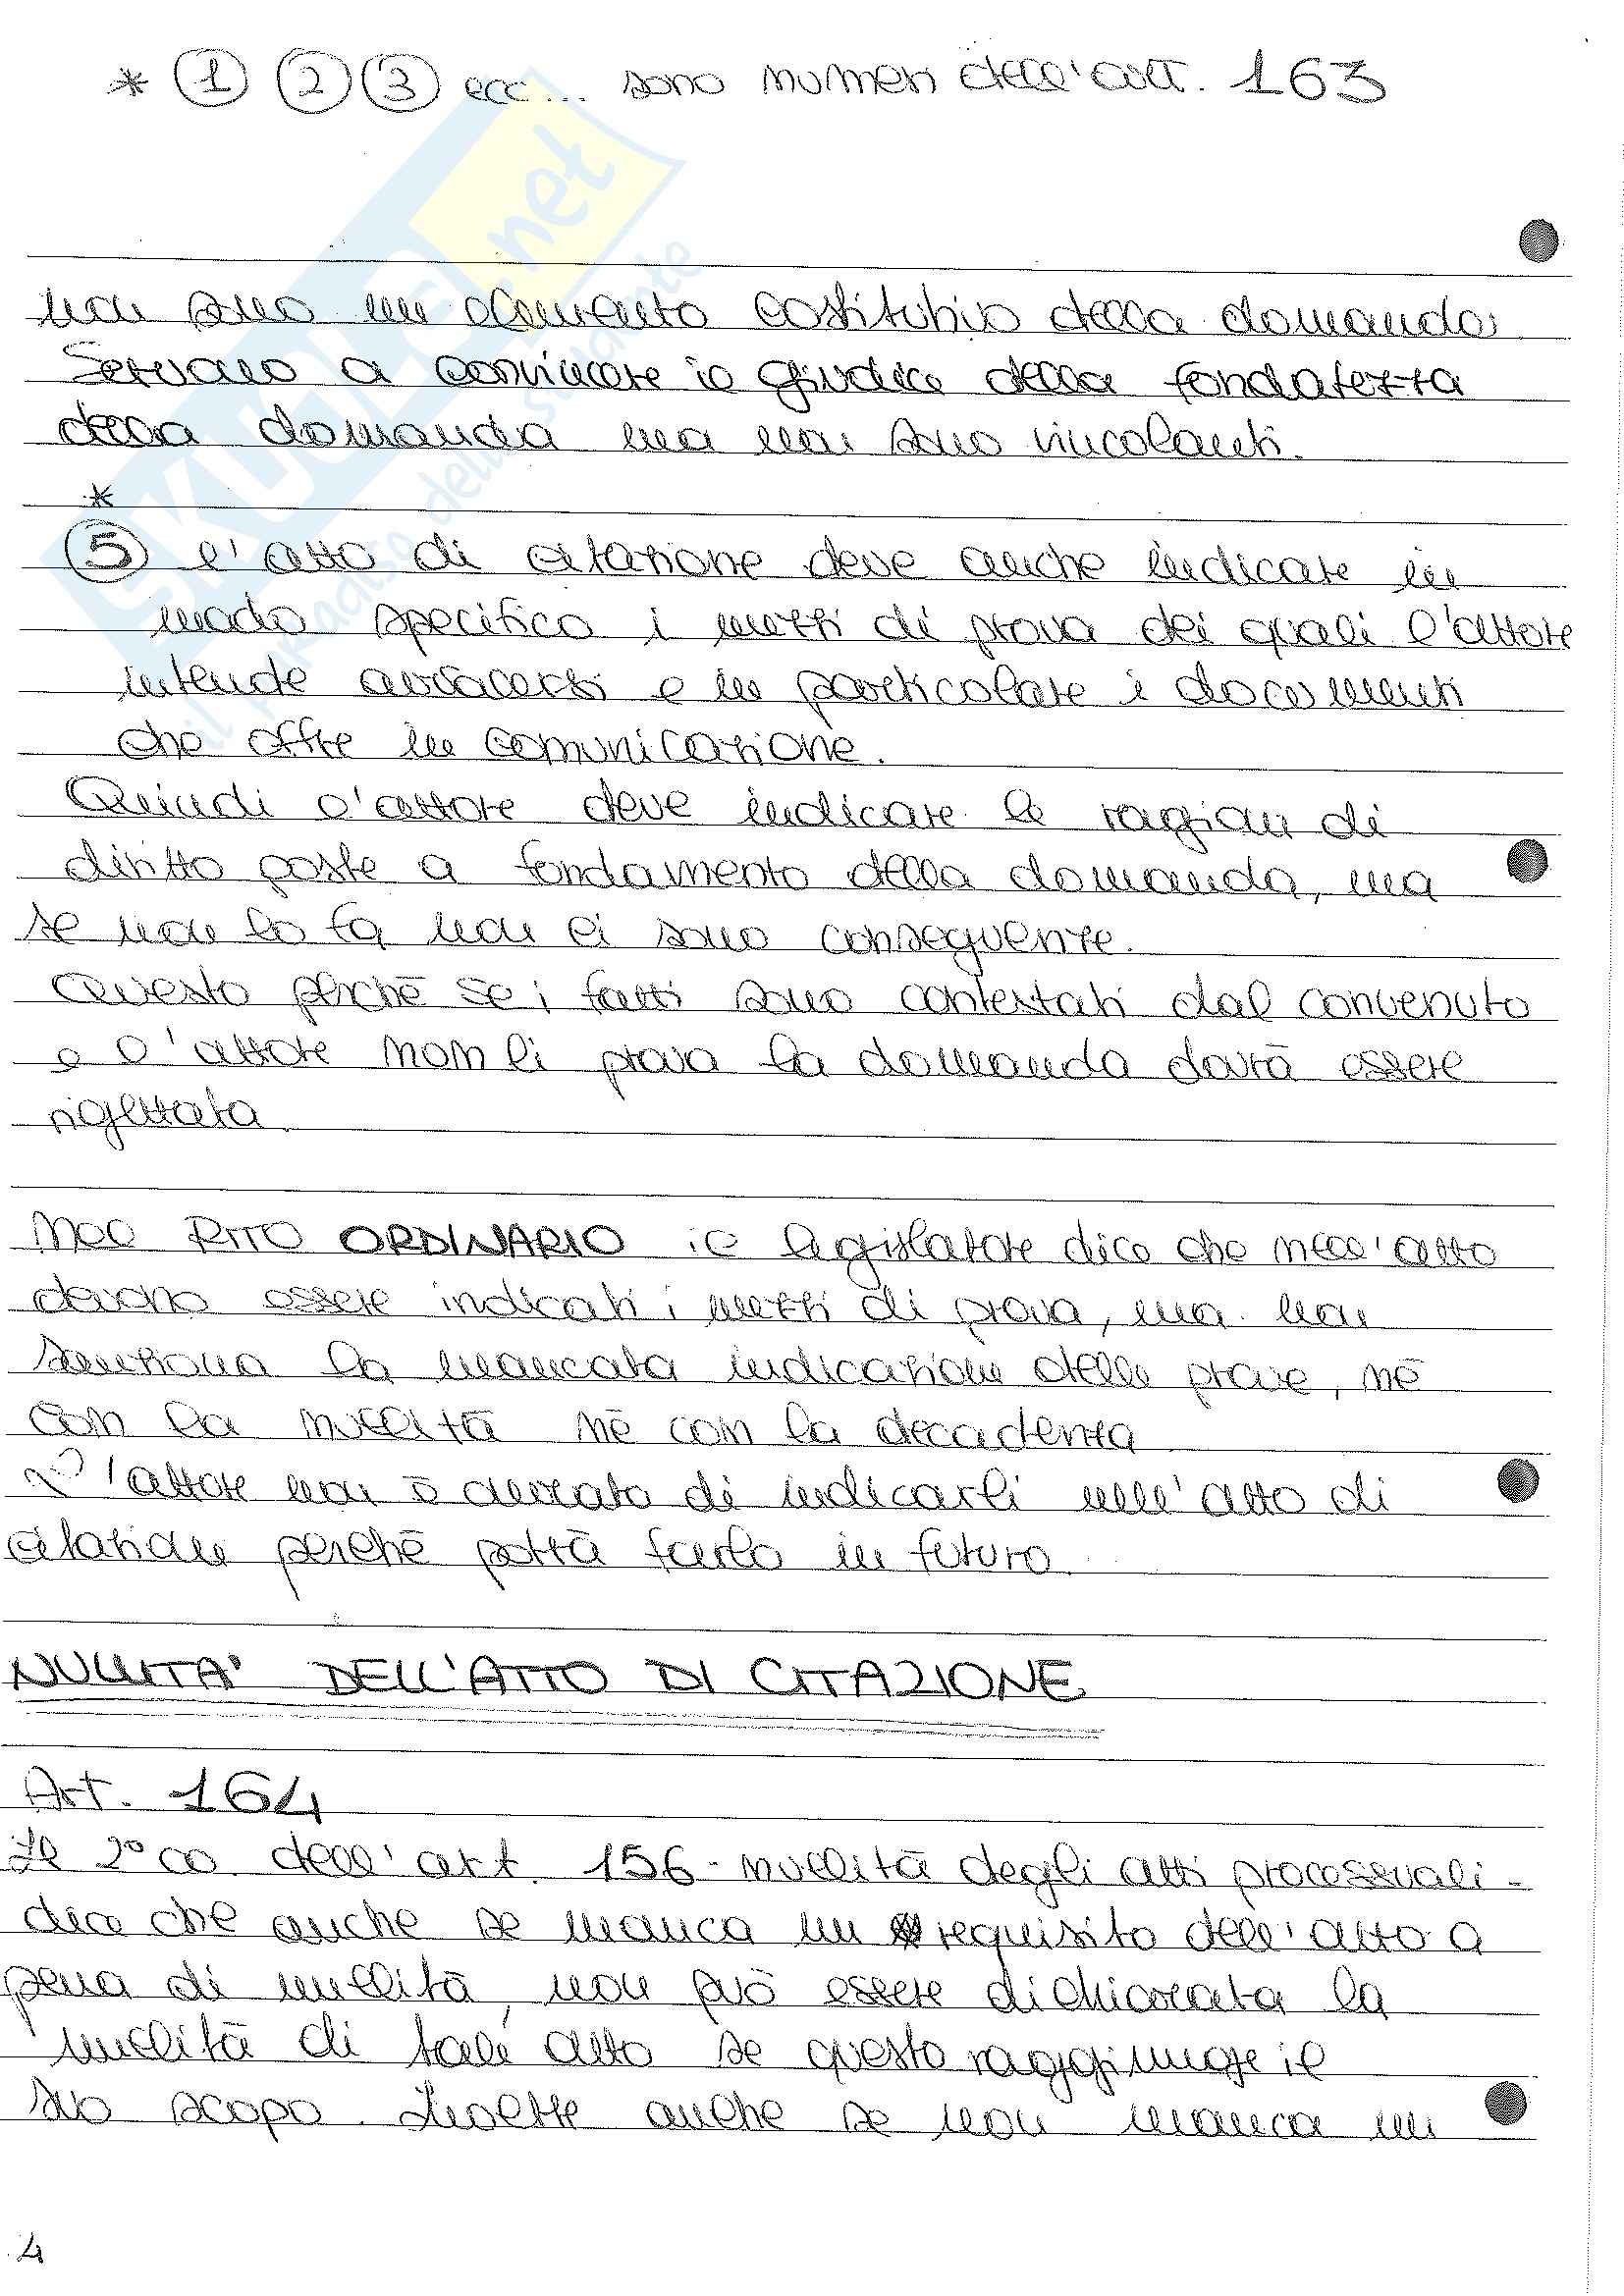 * ① ② ③ ecc... sono numeri dell'art. 163
non sono un elemento costitutivo della domanda.
Servono a convincere il giudice della fondatezza
della domanda ma non sono vincolanti.
*
⑤ l'atto di citazione deve anche indicare in
modo specifico i mezzi di prova dei quali l'attore
intende avvalersi e in particolare i documenti
che offre in comunicazione.
Quindi l'attore deve indicare le ragioni di
diritto poste a fondamento della domanda, ma
se non lo fa non ci sono conseguenze.
Questo perchē se i fatti sono contestati dal convenuto
e l'attore non li prova la domanda dovrā essere
rigettata.
Nel RITO ORDINARIO il legislatore dice che nell'atto
devono essere indicati i mezzi di prova, ma non
sanziona la mancata indicazione delle prove, nē
con la nullitā nē con la decadenza
L'attore non ē onerato di indicarli nell'atto di
citazione perchē potrā farlo in futuro.
NULLITA' DELL'ATTO DI CITAZIONE
Art. 164
Il 2° co. dell'art. 156 - nullitā degli atti processuali -
dice che anche se manca un requisito dell'atto a
pena di nullitā, non puō essere dichiarata la
nullitā di tale atto se questo raggiunge il
suo scopo. Inoltre anche se non manca un
4
SKUOLA.net
il paradiso dello studente